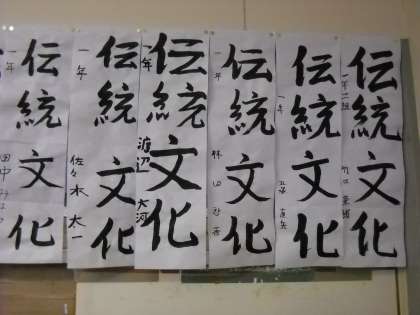 伝統文化
一年
田中
伝統文化
一年
佐々木 太一
伝統文化
一年
渡辺 大河
伝統文化
一年
林
伝統文化
一年
伝統文化
一年二組